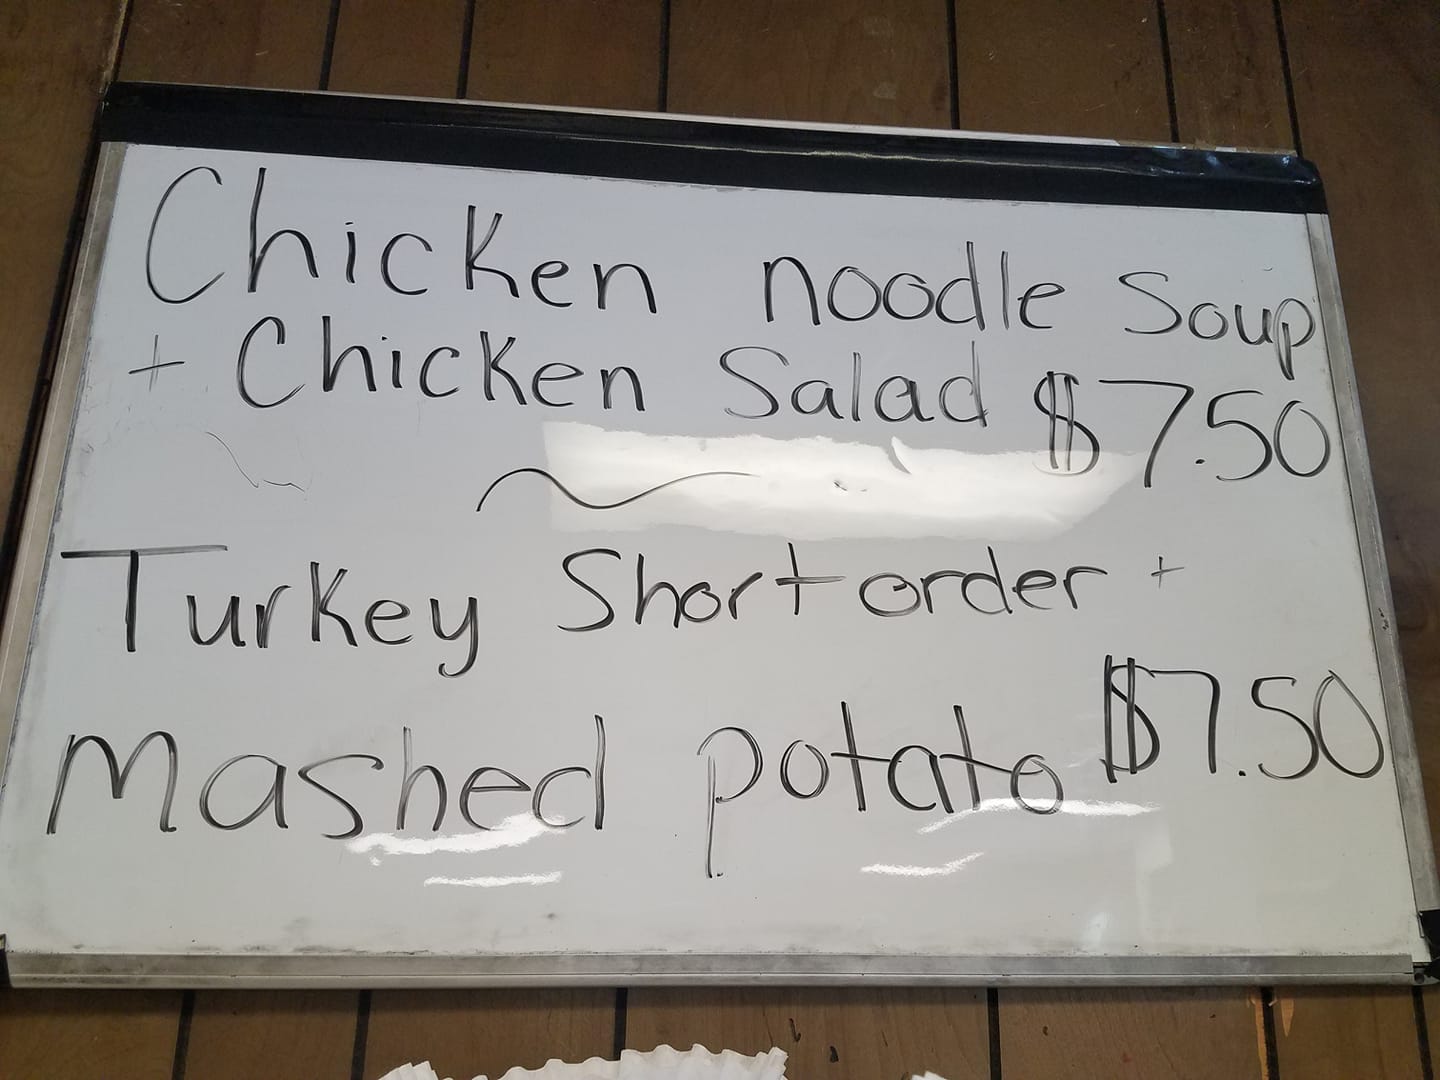 Chicken noodle Soup
+ Chicken Salad $7.50
Turkey Short order +
Mashed potato $7.50